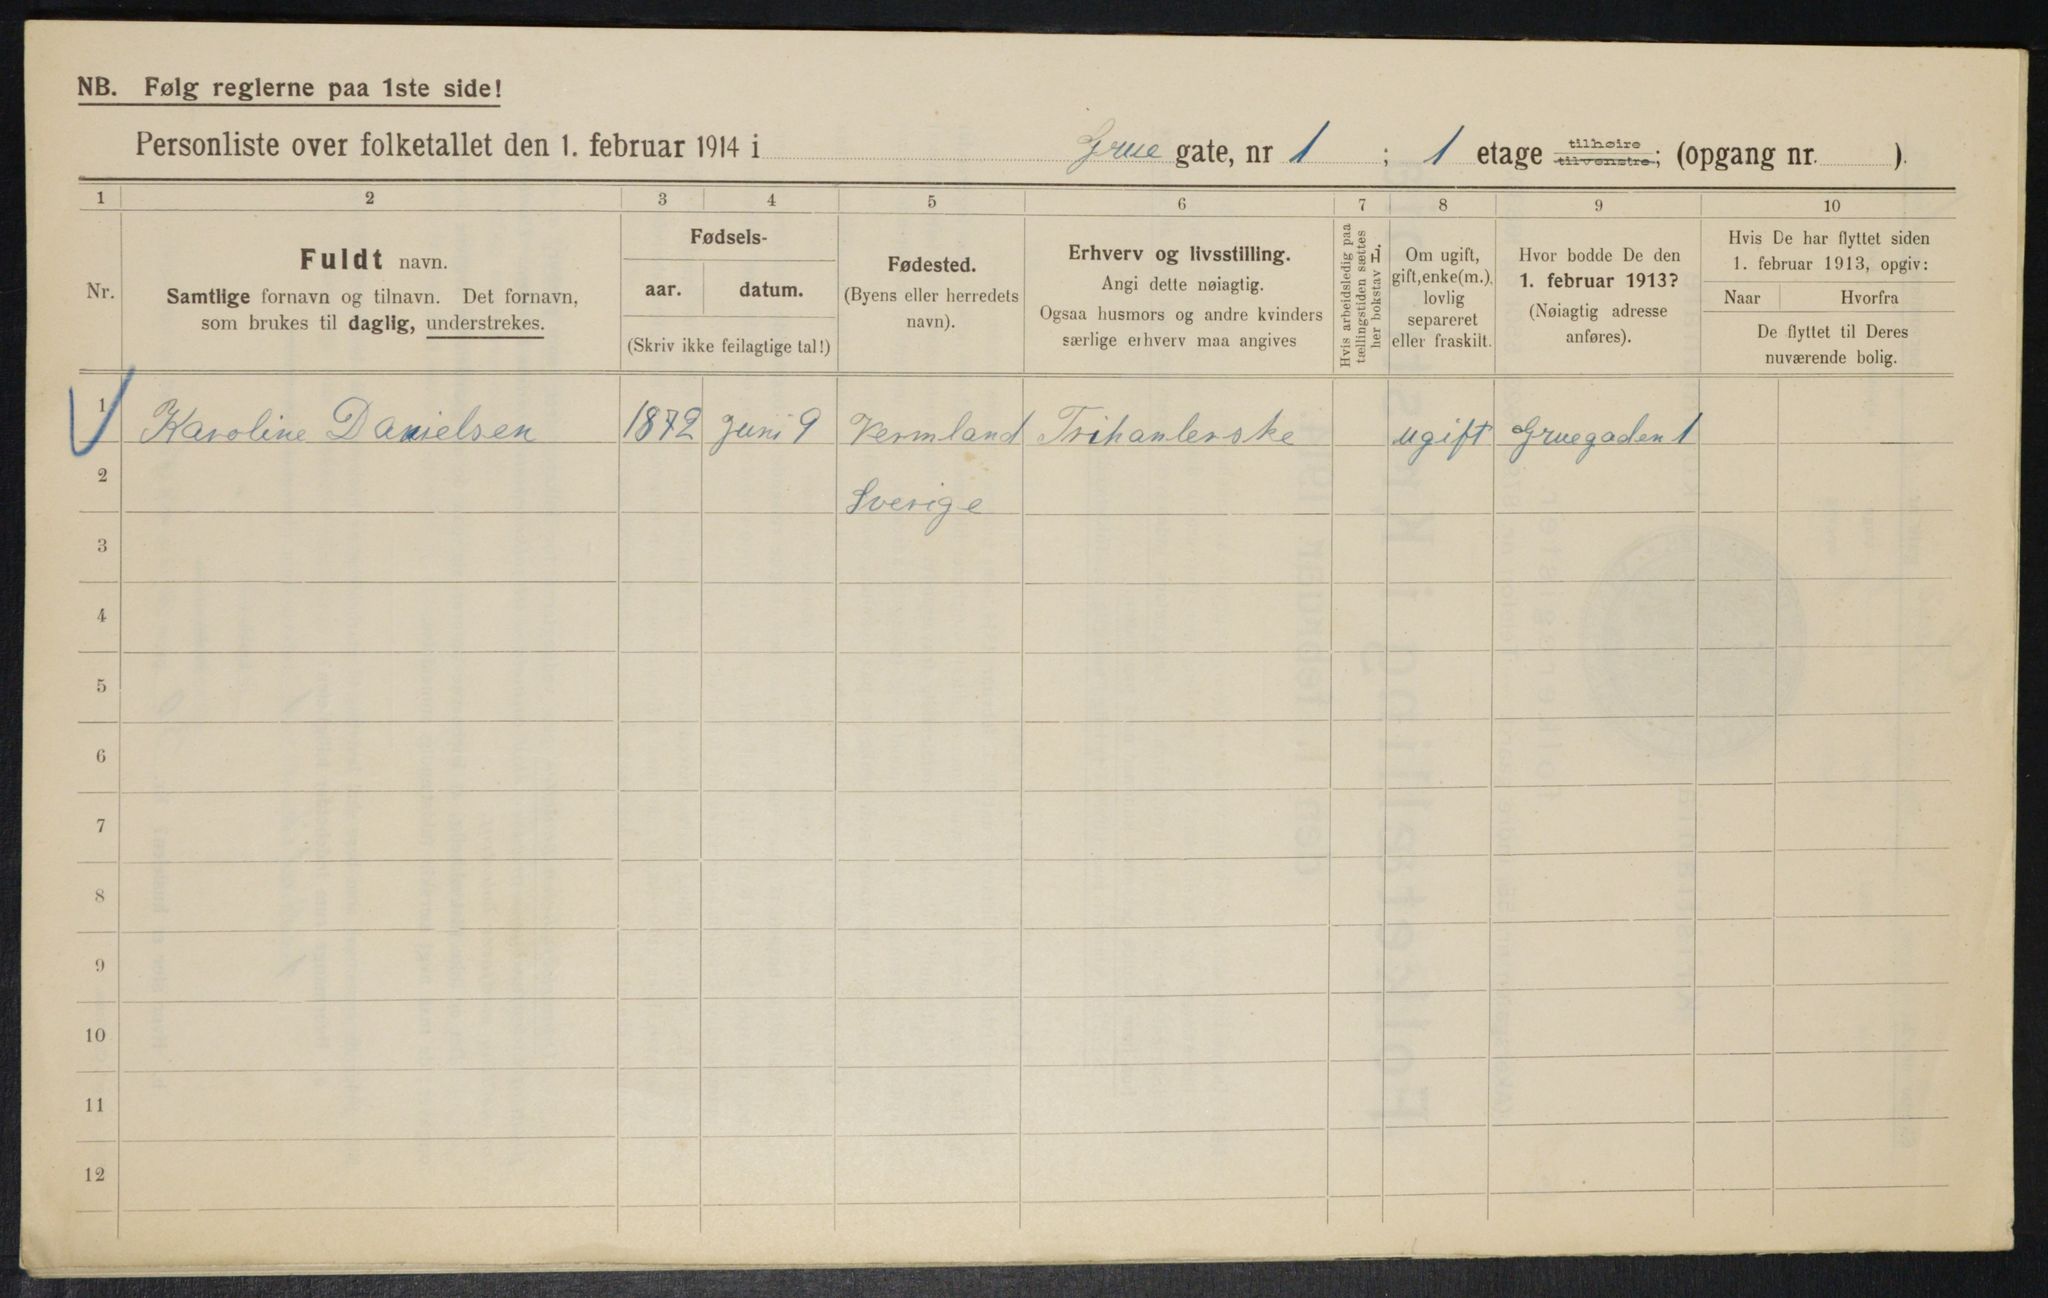 NB. Følg reglerne paa 1ste side!
Personliste over folketallet den 1. februar 1914 i Grue gate, nr 1 ; 1 etage tilhøire tilvenstre; (opgang nr. ).
1 2 3 4 5 6 7 8 9 10
Nr.
Fuldt navn.
Samtlige fornavn og tilnavn. Det fornavn,
som brukes til daglig, understrekes.
Fødsels-
aar. datum.
(Skriv ikke feilagtige tal!)
Fødested.
(Byens eller herredets
navn).
Erhverv og livsstilling.
Angi dette nøiagtig.
Ogsaa husmors og andre kvinders
særlige erhverv maa angives
Hvis arbeidsledig paa
tællingstiden sættes
her bokstav L.
Om ugift,
gift, enke(m.),
lovlig
separeret
eller fraskilt.
Hvor bodde De den
1. februar 1913?
(Nøiagtig adresse
anføres).
Hvis De har flyttet siden
1. februar 1913, opgiv:
Naar Hvorfra
De flyttet til Deres
nuværende bolig.
1 Karoline Danielsen 1872 Juni 9 Vermland Trihanlerske ugift Gruegaden 1
2 Sverige
3
4
5
6
7
8
9
10
11
12